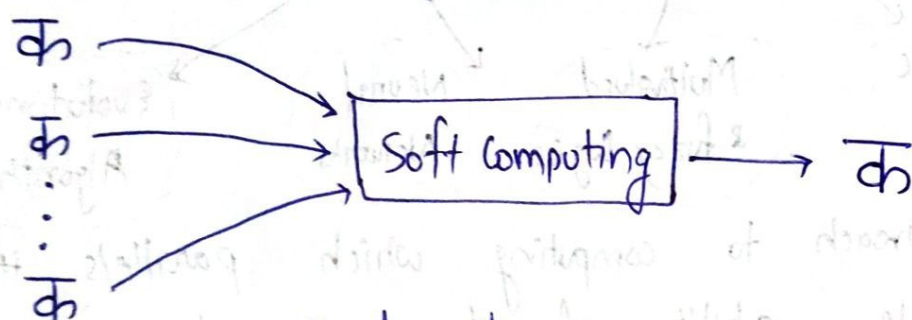 क
क
Soft Computing
क
क